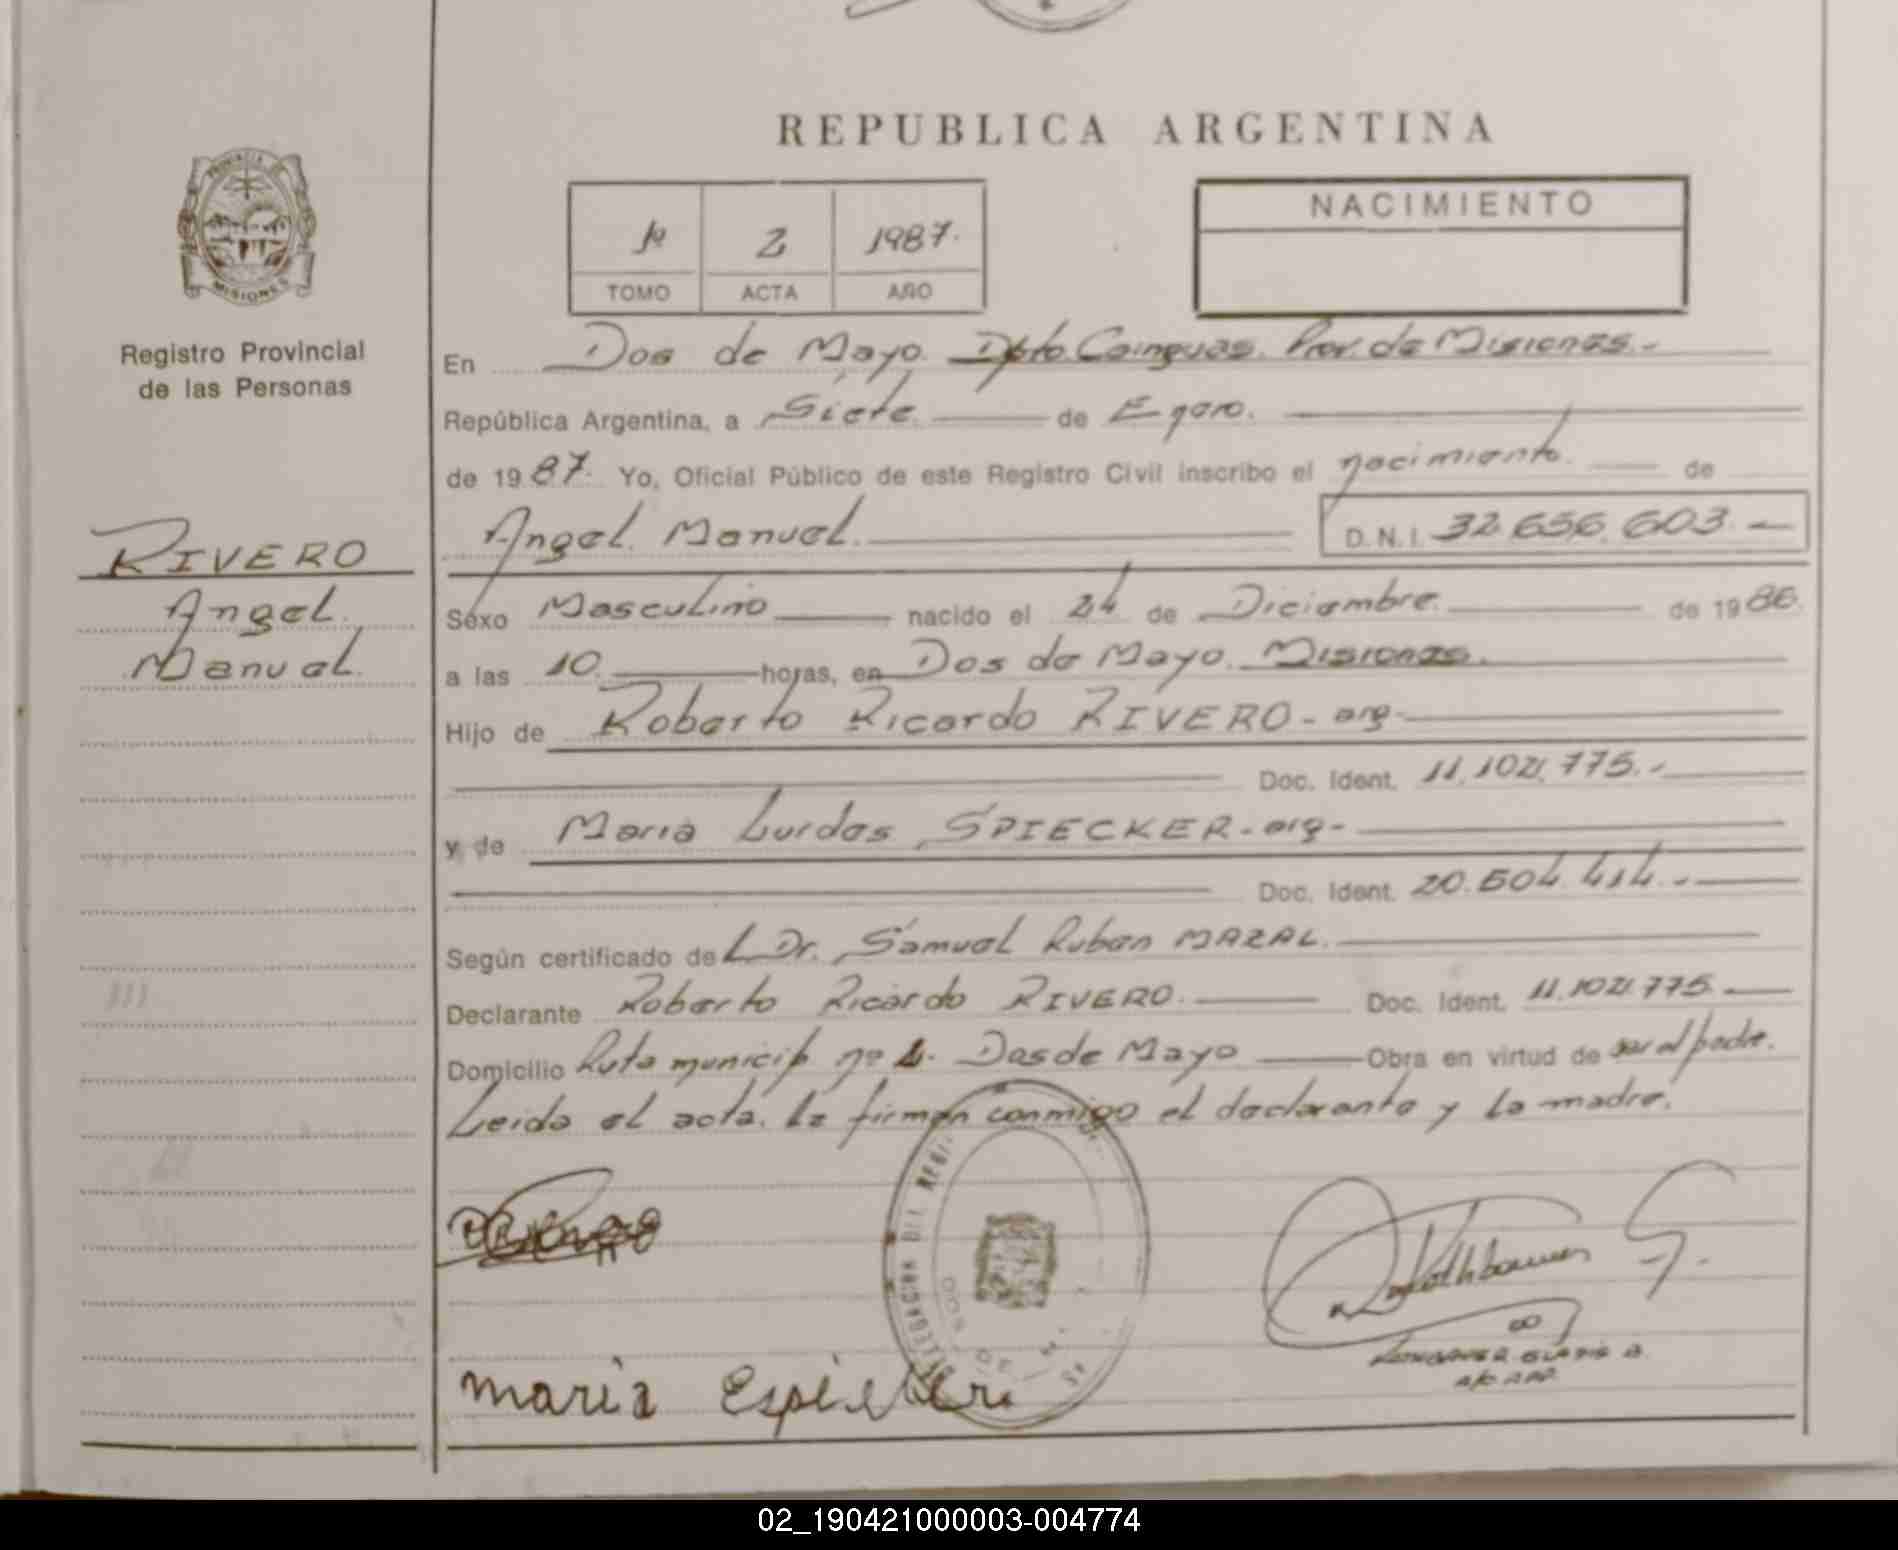 REPUBLICA ARGENTINA
PROVINCIA DE
MISIONES
Registro Provincial
de las Personas
1º 2 1987.
TOMO ACTA AÑO
NACIMIENTO
En Dos de Mayo. Dpto. Cainguas. Prov. de Misiones.-
República Argentina, a Siete. de Enero.
de 1987. Yo, Oficial Público de este Registro Civil inscribo el nacimiento. de
Angel. Manuel. D.N.I. 32.656.603.-
RIVERO
Angel.
Manuel.
Sexo Masculino nacido el 24 de Diciembre. de 1986.
a las 10. horas, en Dos de Mayo. Misiones.
Hijo de Roberto Ricardo RIVERO - arg-
Doc. Ident. 11.1021.775.-
y de Maria Lurdes SPIECKER - arg-
Doc. Ident. 20.504.414.-
Según certificado del Dr. Samuel Ruben MAZAL.
Declarante Roberto Ricardo RIVERO. Doc. Ident. 11.1021.775.
Domicilio Ruta municip nº 1. Dos de Mayo Obra en virtud de ser el padre.
Leida el acta. la firman conmigo el declarante y la madre.
DELEGACION DEL REGI
DOS DE M
maria Espieker.
Rothbauer G.
ROTHBAUER GLADIS B.
A/C RPP.
02_190421000003-004774